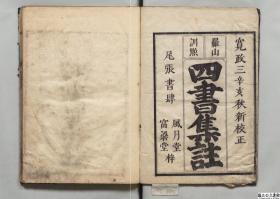 寛政三辛亥秋新校正
羅山
訓點
四書集註
尾張書肆
風月堂
富梁堂
梓